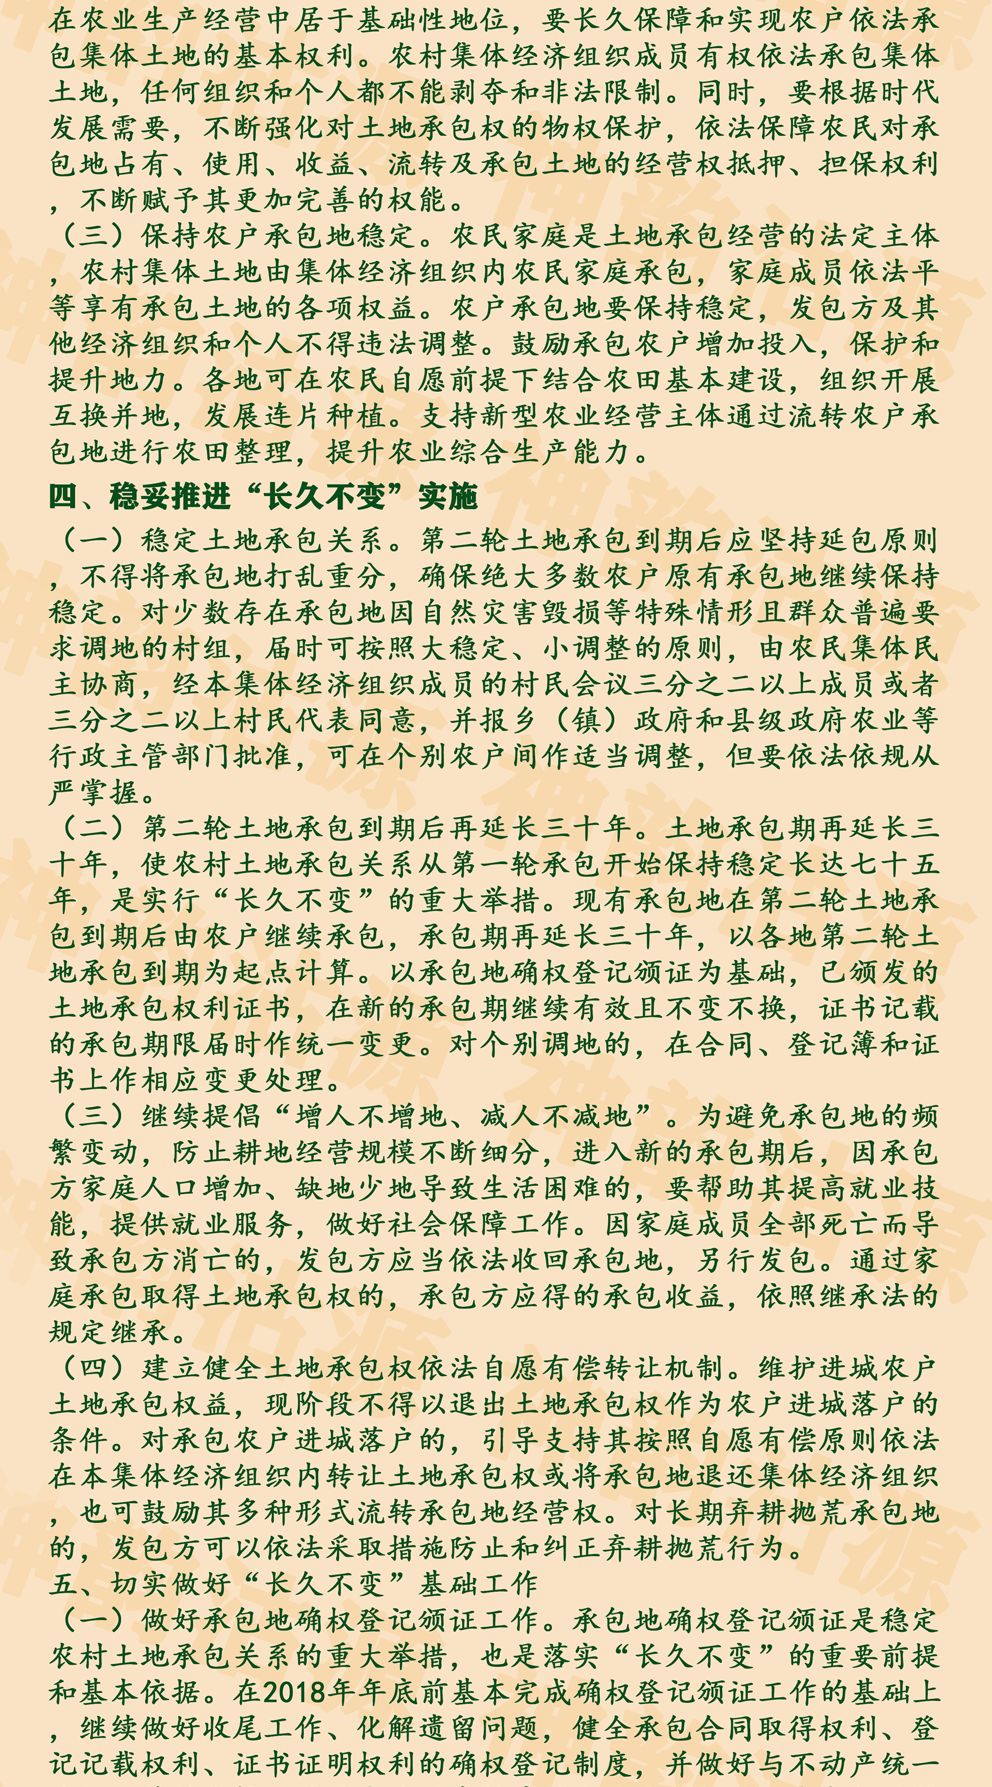 在农业生产经营中居于基础性地位，要长久保障和实现农户依法承
包集体土地的基本权利。农村集体经济组织成员有权依法承包集体
土地，任何组织和个人都不能剥夺和非法限制。同时，要根据时代
发展需要，不断强化对土地承包权的物权保护，依法保障农民对承
包地占有、使用、收益、流转及承包土地的经营权抵押、担保权利
，不断赋予其更加完善的权能。
（三）保持农户承包地稳定。农民家庭是土地承包经营的法定主体
，农村集体土地由集体经济组织内农民家庭承包，家庭成员依法平
等享有承包土地的各项权益。农户承包地要保持稳定，发包方及其
他经济组织和个人不得违法调整。鼓励承包农户增加投入，保护和
提升地力。各地可在农民自愿前提下结合农田基本建设，组织开展
互换并地，发展连片种植。支持新型农业经营主体通过流转农户承
包地进行农田整理，提升农业综合生产能力。
四、稳妥推进“长久不变”实施
（一）稳定土地承包关系。第二轮土地承包到期后应坚持延包原则
，不得将承包地打乱重分，确保绝大多数农户原有承包地继续保持
稳定。对少数存在承包地因自然灾害毁损等特殊情形且群众普遍要
求调地的村组，届时可按照大稳定、小调整的原则，由农民集体民
主协商，经本集体经济组织成员的村民会议三分之二以上成员或者
三分之二以上村民代表同意，并报乡（镇）政府和县级政府农业等
行政主管部门批准，可在个别农户间作适当调整，但要依法依规从
严掌握。
（二）第二轮土地承包到期后再延长三十年。土地承包期再延长三
十年，使农村土地承包关系从第一轮承包开始保持稳定长达七十五
年，是实行“长久不变”的重大举措。现有承包地在第二轮土地承
包到期后由农户继续承包，承包期再延长三十年，以各地第二轮土
地承包到期为起点计算。以承包地确权登记颁证为基础，已颁发的
土地承包权利证书，在新的承包期继续有效且不变不换，证书记载
的承包期限届时作统一变更。对个别调地的，在合同、登记簿和证
书上作相应变更处理。
（三）继续提倡“增人不增地、减人不减地”。为避免承包地的频
繁变动，防止耕地经营规模不断细分，进入新的承包期后，因承包
方家庭人口增加、缺地少地导致生活困难的，要帮助其提高就业技
能，提供就业服务，做好社会保障工作。因家庭成员全部死亡而导
致承包方消亡的，发包方应当依法收回承包地，另行发包。通过家
庭承包取得土地承包权的，承包方应得的承包收益，依照继承法的
规定继承。
（四）建立健全土地承包权依法自愿有偿转让机制。维护进城农户
土地承包权益，现阶段不得以退出土地承包权作为农户进城落户的
条件。对承包农户进城落户的，引导支持其按照自愿有偿原则依法
在本集体经济组织内转让土地承包权或将承包地退还集体经济组织
，也可鼓励其多种形式流转承包地经营权。对长期弃耕抛荒承包地
的，发包方可以依法采取措施防止和纠正弃耕抛荒行为。
五、切实做好“长久不变”基础工作
（一）做好承包地确权登记颁证工作。承包地确权登记颁证是稳定
农村土地承包关系的重大举措，也是落实“长久不变”的重要前提
和基本依据。在2018年年底前基本完成确权登记颁证工作的基础上
，继续做好收尾工作、化解遗留问题，健全承包合同取得权利、登
记记载权利、证书证明权利的确权登记制度，并做好与不动产统一